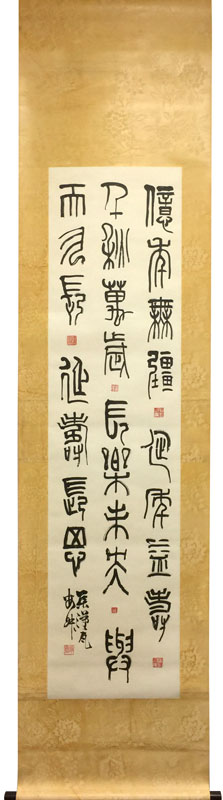 億年無疆延年益壽
千秋萬歲長樂未央與
天久長延壽長
集漢瓦